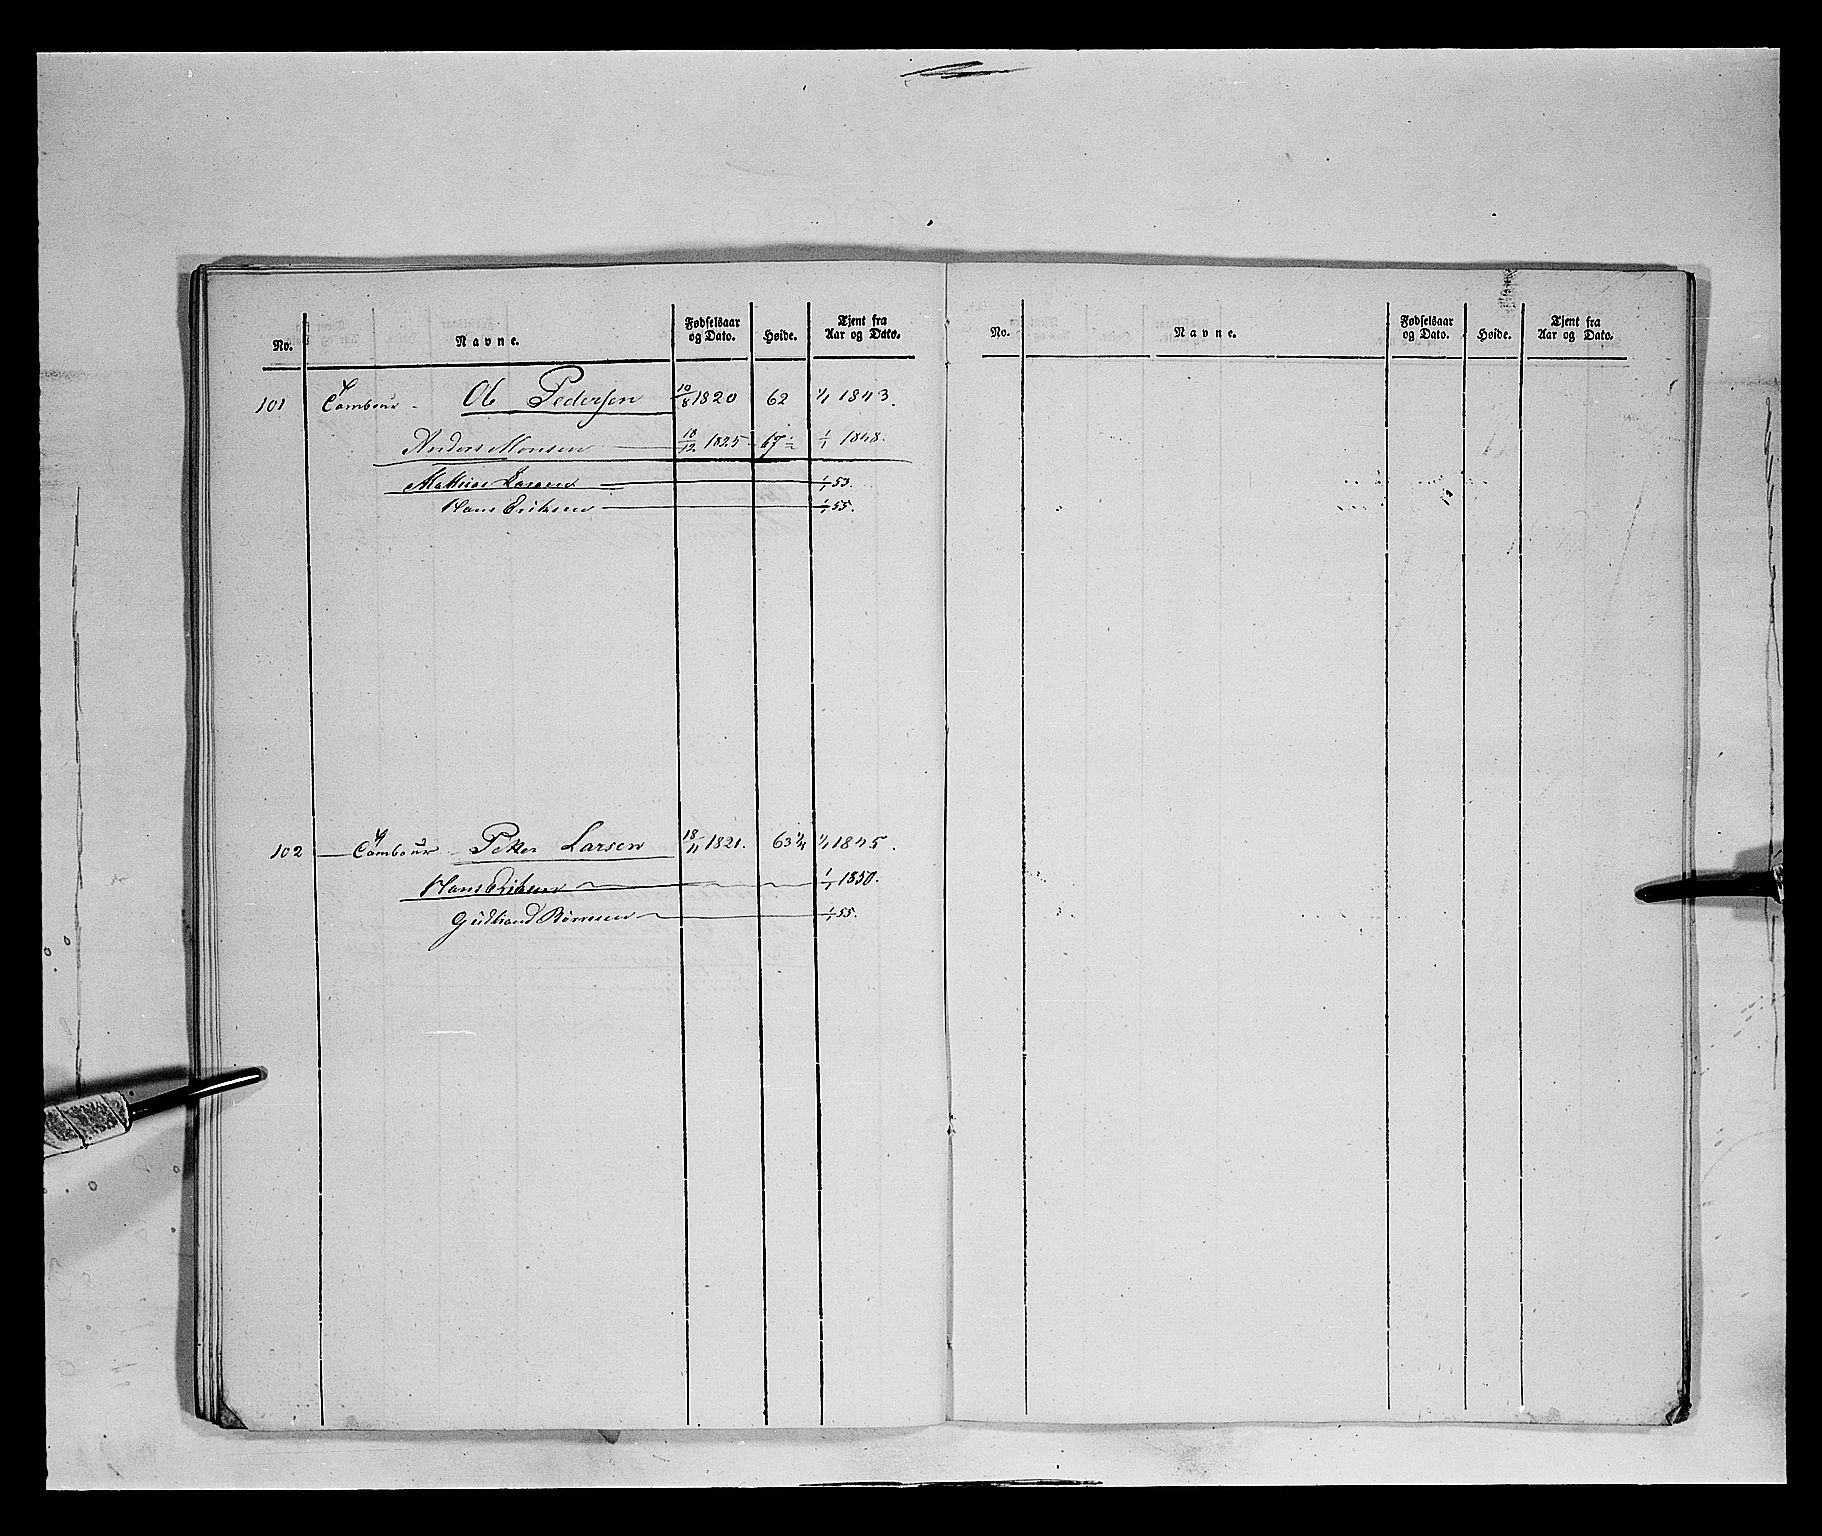 No. Navne. Fødselsaar og Dato. Høide. Tjent fra Aar og Dato.
101 Tambour - Ole Pedersen 10/8 1820 62 1/1 1843.
Anders Monsen 18/12 1825 67 1/2 1/1 1848.
Mathias Larsen 1/1 53.
Hans Eriksen 1/1 55.
102 Tambour Peter Larsen 18/11 1821. 63 3/4 1/1 1845.
Hans Eriksen 1/1 1850.
Gudbrand 1/1 55.
No. Navne. Fødselsaar og Dato. Høide. Tjent fra Aar og Dato.